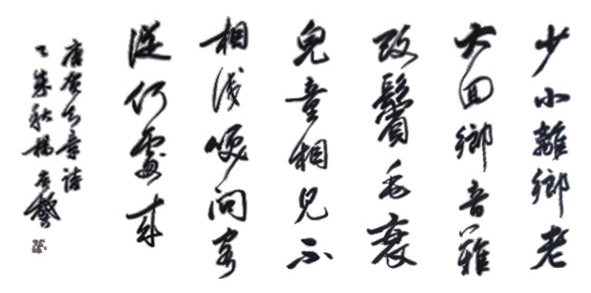 少小離鄉老
大回鄉音難
改鬢毛衰
兒童相見不
相識咲問客
從何處來
唐賀知章詩
乙未秋楊